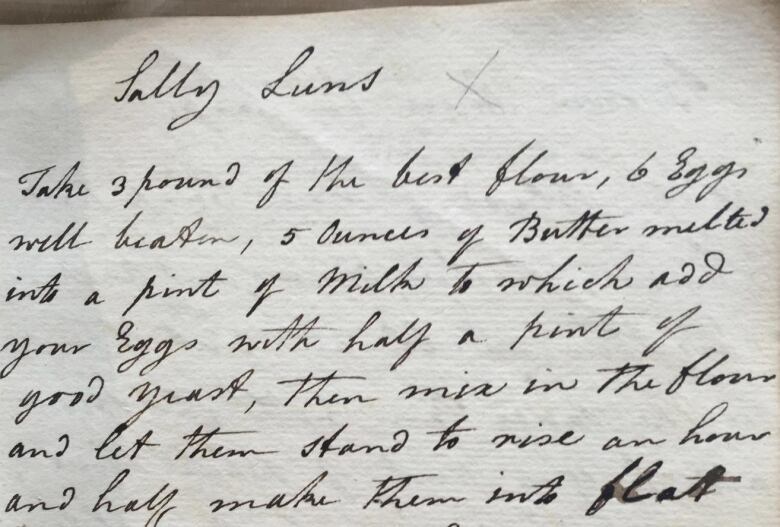 Sally Luns X
Take 3 pound of the best flour, 6 Eggs
well beaten, 5 Ounces of Butter melted
into a pint of Milk to which add
your Eggs with half a pint of
good yeast, then mix in the flour
and let them stand to rise an hour
and half make them into flatt